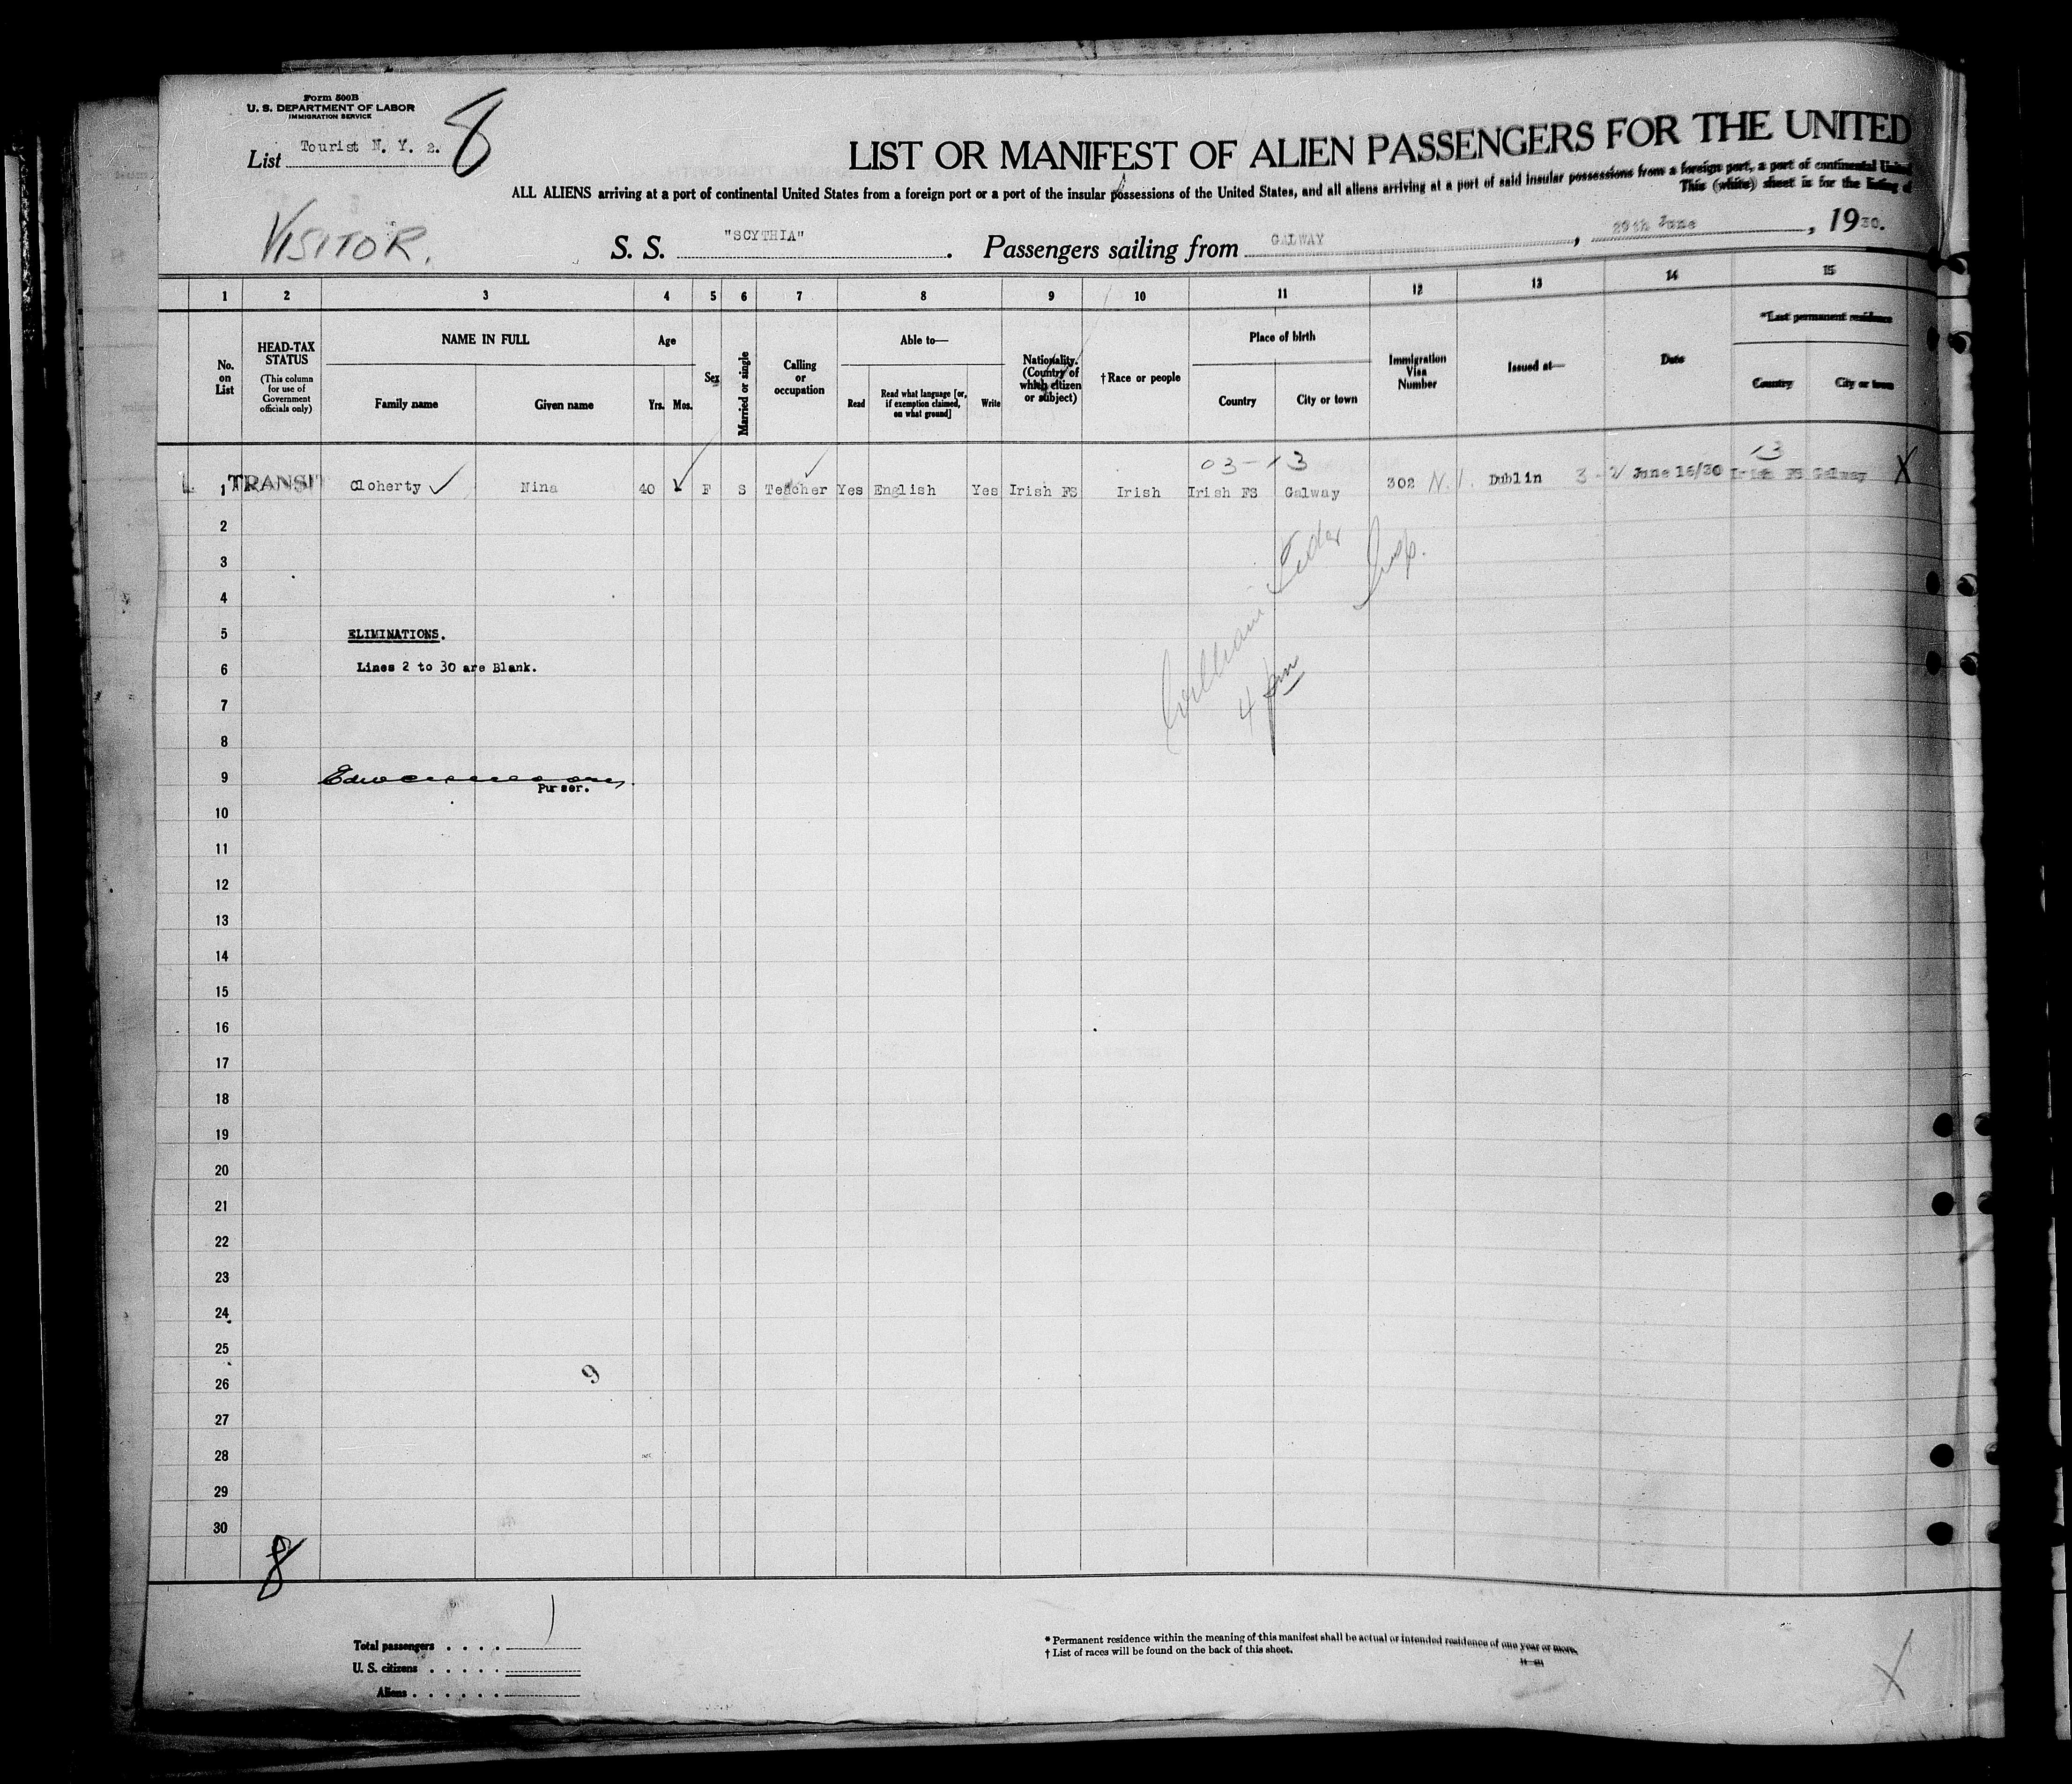 Form 500B
U. S. DEPARTMENT OF LABOR
IMMIGRATION SERVICE
List Tourist N. Y. 2. 8
LIST OR MANIFEST OF ALIEN PASSENGERS FOR THE UNITED
ALL ALIENS arriving at a port of continental United States from a foreign port or a port of the insular possessions of the United States, and all aliens arriving at a port of said insular possessions from a foreign port, a port of continental United
This (white) sheet is for the listing of
VISITOR.
S. S. "SCYTHIA". Passengers sailing from GALWAY, 29th June, 1930.
1 2 3 4 5 6 7 8 9 10 11 12 13 14 15
No. on List
HEAD-TAX STATUS
(This column for use of Government officials only)
NAME IN FULL
Family name Given name
Age
Yrs. Mos.
Sex
Married or single
Calling or occupation
Able to—
Read
Read what language [or, if exemption claimed, on what ground]
Write
Nationality. (Country of which citizen or subject)
†Race or people
Place of birth
Country City or town
Immigration Visa Number
Issued at—
Date
*Last permanent residence
Country City or town
03-13 13
1 TRANSIT Cloherty Nina 40 F S Teacher Yes English Yes Irish FS Irish Irish FS Galway 302 N.I. Dublin June 16/30 Irish FS Galway X
2
3
4
5 ELIMINATIONS.
6 Lines 2 to 30 are Blank.
7
8
9
Purser.
William
4 pm
10
11
12
13
14
15
16
17
18
19
20
21
22
23
24
25
9
26
27
28
29
30
8
Total passengers . . . . 1
U. S. citizens . . . . .
Aliens . . . . . .
* Permanent residence within the meaning of this manifest shall be actual or intended residence of one year or more.
† List of races will be found on the back of this sheet.
X